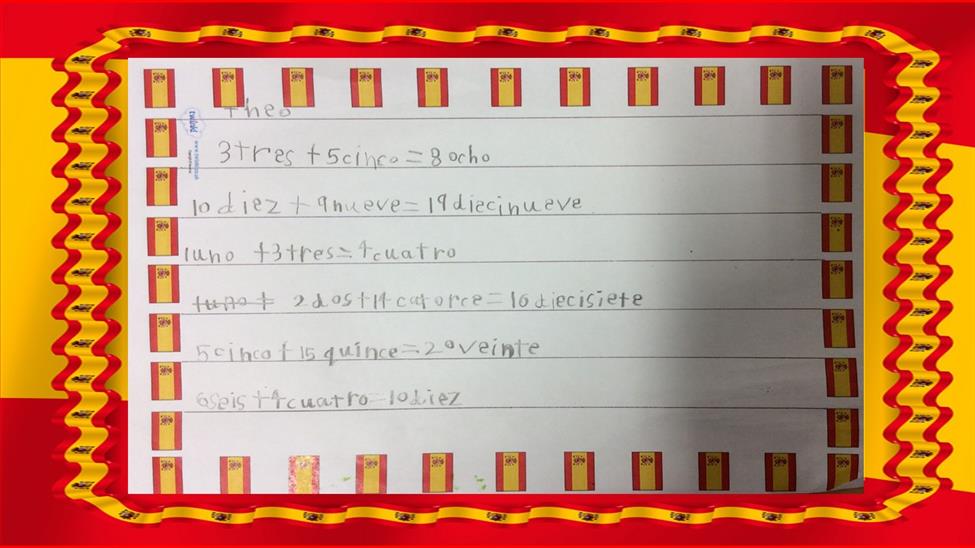 Theo
3tres +5cinco=8ocho
10 diez +9nueve=19diecinueve
1uno +3tres=4cuatro
1uno + 2dos+14 catorce=16 diecisiete
5cinco+15 quince=20veinte
6seis+4cuatro=10diez